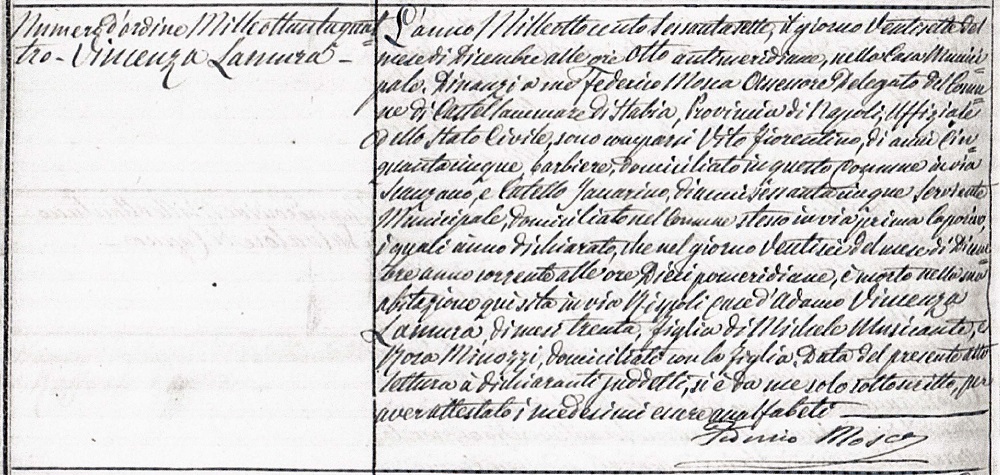 Numero d'ordine Milleottantaquat
tro - Vincenza Lamura -
L'anno Milleottocento Sessantasette, il giorno Ventisette del
mese di Dicembre alle ore Otto antimeridiane, nella Casa Munici
pale. Dinanzi a me Federico Mosca Assessore Delegato del Comu
ne di Castellammare di Stabia, Provincia di Napoli, Uffiziale
dello Stato Civile, sono comparsi Vito Fiorentino, di anni Cin
quantacinque, barbiere, domiciliato in questo Comune in via
e Catello di anni sessantacinque, Serviente
Municipale, domiciliato nel Comune stesso in via prima
i quali ànno dichiarato, che nel giorno Ventisei del mese di Dicem
bre anno corrente alle ore Dieci pomeridiane, è morta nella sua
abitazione qui sita in via Rispoli case d'Adamo Vincenza
Lamura di mesi trenta, figlia di Michele Musicante, e
Rosa Minozzi, domiciliati con la figlia. Data del presente atto
lettura à dichiaranti suddetti, si è da me solo sottoscritto, per
aver attestato i medesimi essere analfabeti
Federico Mosca